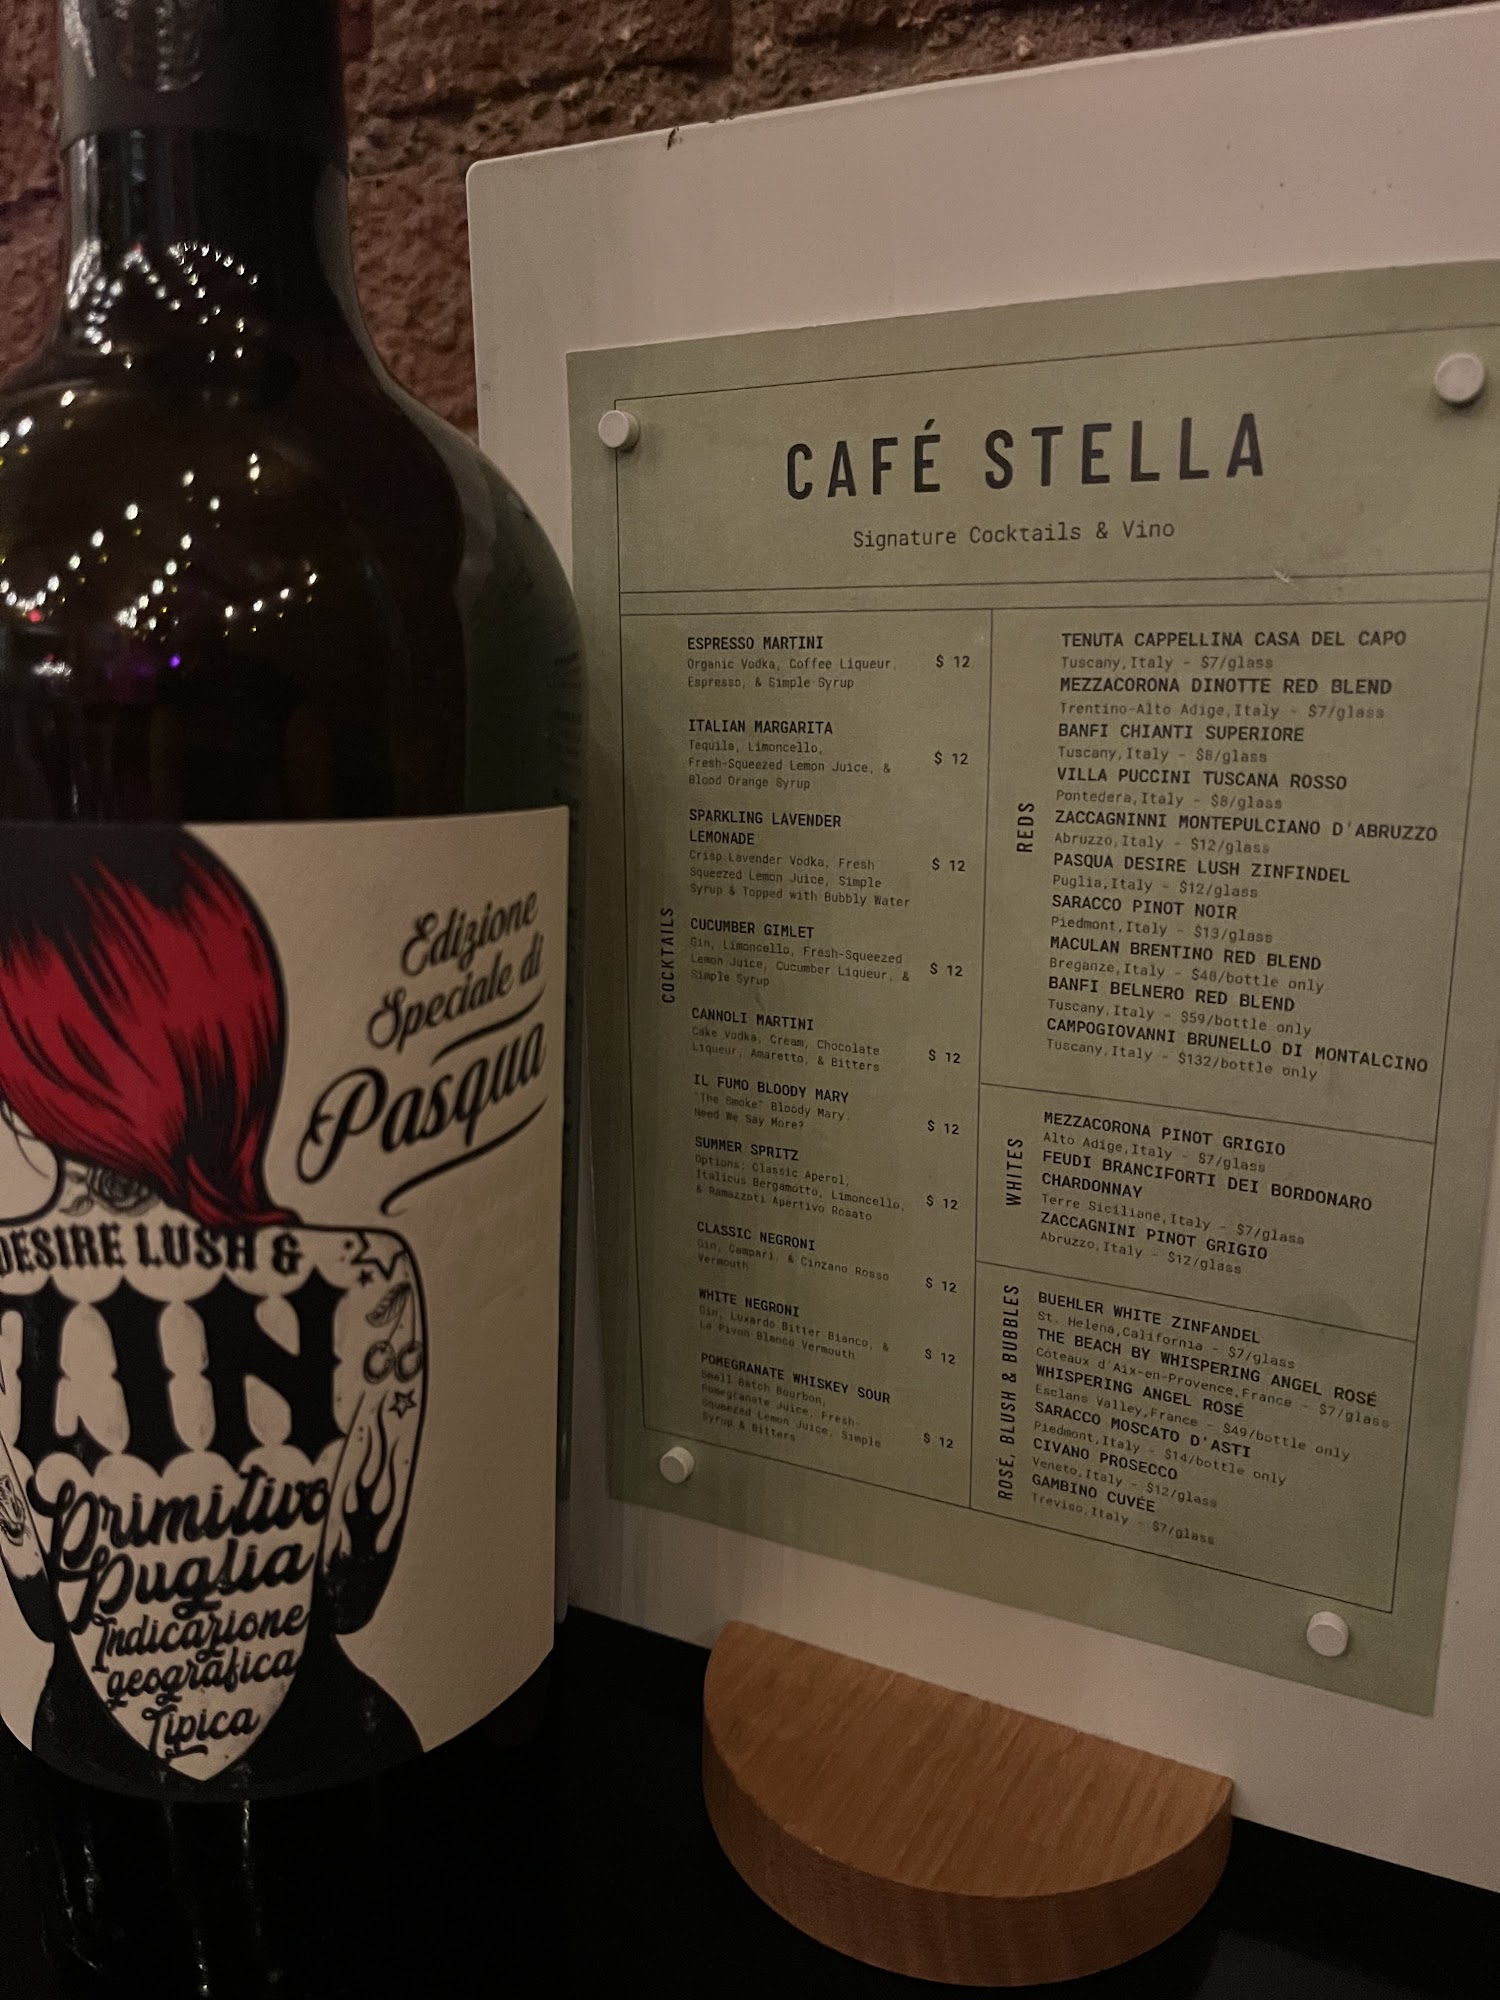 Edizione
Speciale di
Pasqua
DESIRE LUSH &
ZIN
Primitivo
Puglia
Indicazione
geografica
Tipica
CAFÉ STELLA
Signature Cocktails & Vino
COCKTAILS
ESPRESSO MARTINI
Organic Vodka, Coffee Liqueur,
Espresso, & Simple Syrup
$ 12
ITALIAN MARGARITA
Tequila, Limoncello,
Fresh-Squeezed Lemon Juice, &
Blood Orange Syrup
$ 12
SPARKLING LAVENDER
LEMONADE
Crisp Lavender Vodka, Fresh
Squeezed Lemon Juice, Simple
Syrup & Topped with Bubbly Water
$ 12
CUCUMBER GIMLET
Gin, Limoncello, Fresh-Squeezed
Lemon Juice, Cucumber Liqueur, &
Simple Syrup
$ 12
CANNOLI MARTINI
Cake Vodka, Cream, Chocolate
Liqueur, Amaretto, & Bitters
$ 12
IL FUMO BLOODY MARY
"The Smoke" Bloody Mary.
Need We Say More?
$ 12
SUMMER SPRITZ
Options: Classic Aperol,
Italicus Bergamotto, Limoncello,
& Ramazzoti Apertivo Rosato
$ 12
CLASSIC NEGRONI
Gin, Campari, & Cinzano Rosso
Vermouth
$ 12
WHITE NEGRONI
Gin, Luxardo Bitter Bianco, &
La Pivon Blanco Vermouth
$ 12
POMEGRANATE WHISKEY SOUR
Small Batch Bourbon,
Pomegranate Juice, Fresh-
Squeezed Lemon Juice, Simple
Syrup & Bitters
$ 12
REDS
TENUTA CAPPELLINA CASA DEL CAPO
Tuscany,Italy - $7/glass
MEZZACORONA DINOTTE RED BLEND
Trentino-Alto Adige,Italy - $7/glass
BANFI CHIANTI SUPERIORE
Tuscany,Italy - $8/glass
VILLA PUCCINI TUSCANA ROSSO
Pontedera,Italy - $8/glass
ZACCAGNINNI MONTEPULCIANO D'ABRUZZO
Abruzzo,Italy - $12/glass
PASQUA DESIRE LUSH ZINFINDEL
Puglia,Italy - $12/glass
SARACCO PINOT NOIR
Piedmont,Italy - $13/glass
MACULAN BRENTINO RED BLEND
Breganze,Italy - $48/bottle only
BANFI BELNERO RED BLEND
Tuscany,Italy - $59/bottle only
CAMPOGIOVANNI BRUNELLO DI MONTALCINO
Tuscany,Italy - $132/bottle only
WHITES
MEZZACORONA PINOT GRIGIO
Alto Adige,Italy - $7/glass
FEUDI BRANCIFORTI DEI BORDONARO
CHARDONNAY
Terre Siciliane,Italy - $7/glass
ZACCAGNINI PINOT GRIGIO
Abruzzo,Italy - $12/glass
ROSE, BLUSH & BUBBLES
BUEHLER WHITE ZINFANDEL
St. Helena,California - $7/glass
THE BEACH BY WHISPERING ANGEL ROSÉ
Côteaux d'Aix-en-Provence,France - $7/glass
WHISPERING ANGEL ROSÉ
Esclans Valley,France - $49/bottle only
SARACCO MOSCATO D'ASTI
Piedmont,Italy - $14/bottle only
CIVANO PROSECCO
Veneto,Italy - $12/glass
GAMBINO CUVÉE
Treviso,Italy - $7/glass